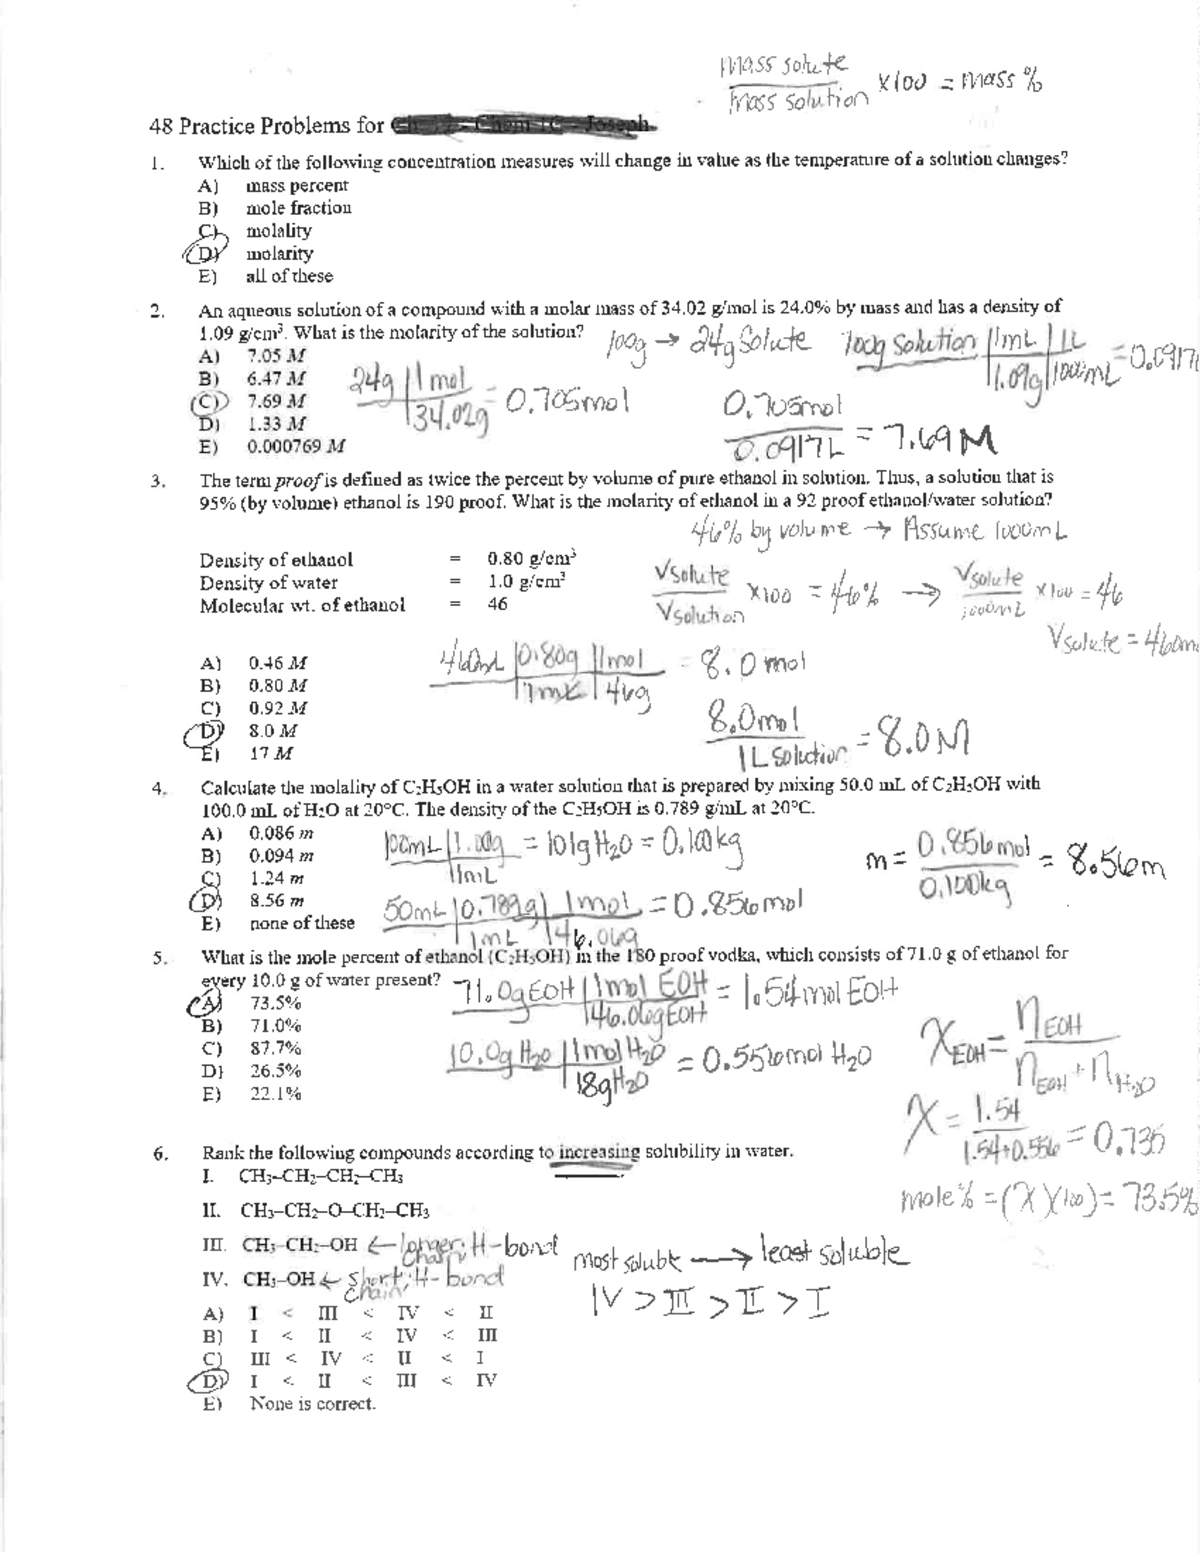 mass solute
mass solution x100 = mass %
48 Practice Problems for
1. Which of the following concentration measures will change in value as the temperature of a solution changes?
A) mass percent
B) mole fraction
C) molality
D) molarity
E) all of these
2. An aqueous solution of a compound with a molar mass of 34.02 g/mol is 24.0% by mass and has a density of
1.09 g/cm³. What is the molarity of the solution? 100g → 24g Solute 100g solution | 1mL | 1L
1.09g | 1000mL = 0.0917L
A) 7.05 M
B) 6.47 M 24g | 1 mol
34.02g = 0.705mol
C) 7.69 M
D) 1.33 M
E) 0.000769 M
0.705mol
0.0917L = 7.69 M
3. The term proof is defined as twice the percent by volume of pure ethanol in solution. Thus, a solution that is
95% (by volume) ethanol is 190 proof. What is the molarity of ethanol in a 92 proof ethanol/water solution?
46% by volume → Assume 1000mL
Density of ethanol = 0.80 g/cm³
Density of water = 1.0 g/cm³
Molecular wt. of ethanol = 46
Vsolute
Vsolution x100 = 46% → Vsolute
1000mL x100 = 46
Vsolute = 460m
A) 0.46 M
B) 0.80 M
C) 0.92 M
D) 8.0 M
E) 17 M
460mL | 0.80g | 1mol
1mL | 46g = 8.0 mol
8.0mol
1L solution = 8.0M
4. Calculate the molality of C₂H₅OH in a water solution that is prepared by mixing 50.0 mL of C₂H₅OH with
100.0 mL of H₂O at 20°C. The density of the C₂H₅OH is 0.789 g/mL at 20°C.
A) 0.086 m
B) 0.094 m
C) 1.24 m
D) 8.56 m
E) none of these
100mL | 1.00g
1mL = 101gH₂O = 0.100kg
50mL | 0.789g | 1mol
1mL | 46.06g = 0.856mol
m = 0.856mol
0.100kg = 8.56m
5. What is the mole percent of ethanol (C₂H₅OH) in the 180 proof vodka, which consists of 71.0 g of ethanol for
every 10.0 g of water present?
A) 73.5%
B) 71.0%
C) 87.7%
D) 26.5%
E) 22.1%
71.0gEOH | 1mol EOH
46.06gEOH = 1.54molEOH
10.0gH₂O | 1molH₂O
18gH₂O = 0.556mol H₂O
XEOH = nEOH
nEOH + nH₂O
X = 1.54
1.54+0.556 = 0.735
mole% = (X)(100) = 73.5%
6. Rank the following compounds according to increasing solubility in water.
I. CH₃–CH₂–CH₂–CH₃
II. CH₃–CH₂–O–CH₂–CH₃
III. CH₃–CH₂–OH ← longer chain; H-bond
IV. CH₃–OH ← short chain; H-bond
most soluble → least soluble
IV > III > II > I
A) I < III < IV < II
B) I < II < IV < III
C) III < IV < II < I
D) I < II < III < IV
E) None is correct.